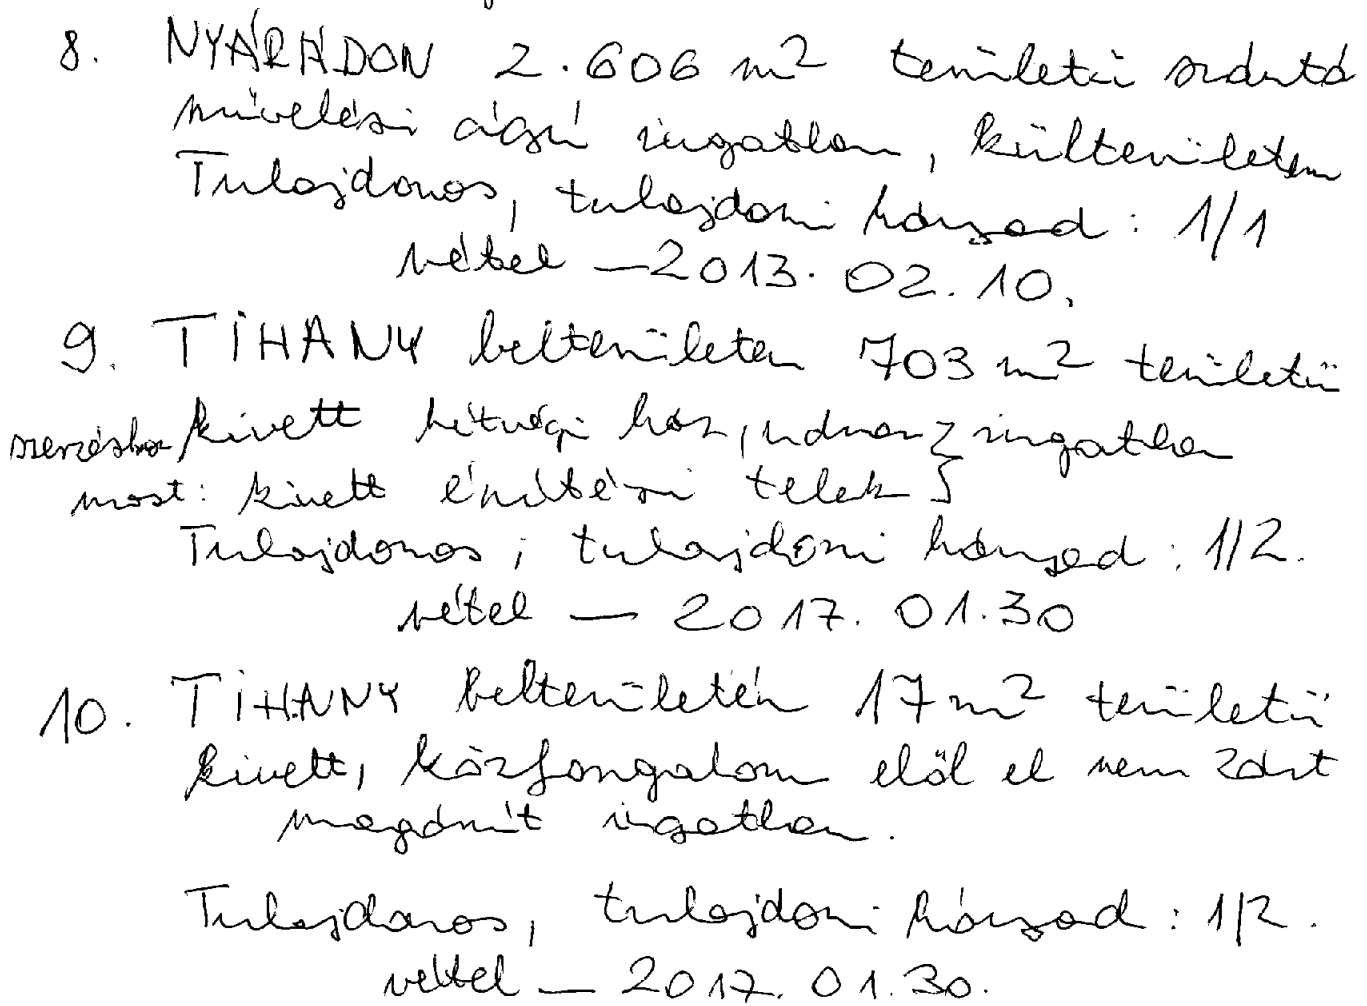 8. NYÁRÁDON 2.606 m² területű szántó
művelési ágú ingatlan, külterületen
Tulajdonos, tulajdoni hányad: 1/1
vétel – 2013. 02. 10.
9. TIHANY belterületen 703 m² területű
szerzéskor kivett hétvégi ház, udvar } ingatlan
most: kivett építési telek }
Tulajdonos; tulajdoni hányad: 1/2.
vétel — 2017. 01. 30
10. TIHANY belterületén 17 m² területű
kivett, közforgalom elől el nem zárt
magánút ingatlan.
Tulajdonos, tulajdoni hányad: 1/2.
vétel — 2017. 01. 30.